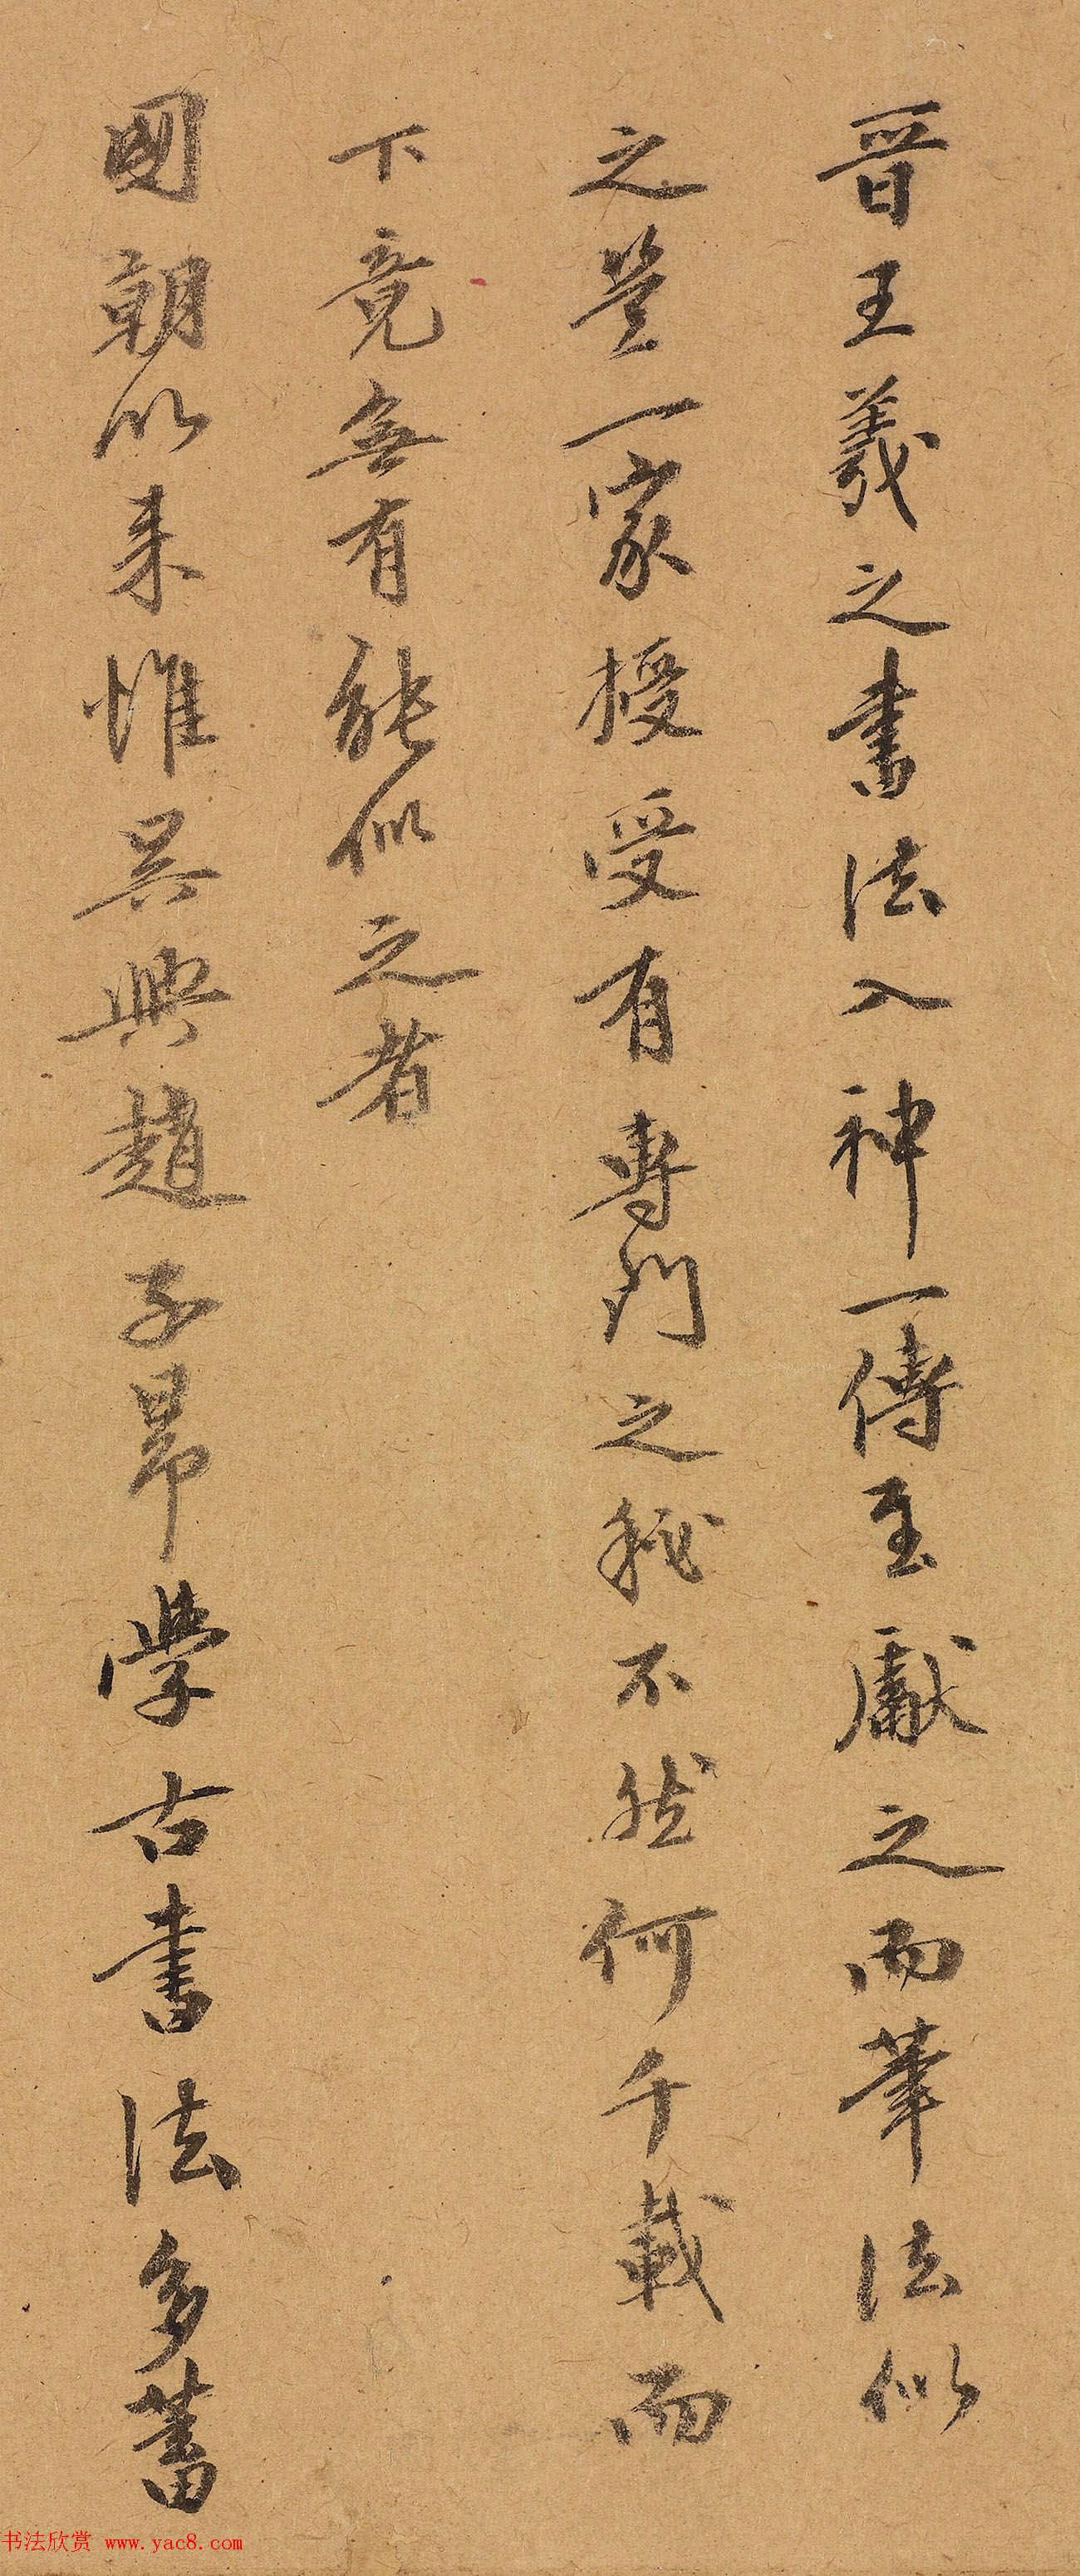 晉王羲之書法入神一傳至獻之而筆法似
之豈一家授受有專門之秘不然何千載而
下竟無有能似之者
國朝以来惟吴興趙子昂學古書法多蓄
书法欣赏 www.yac8.com